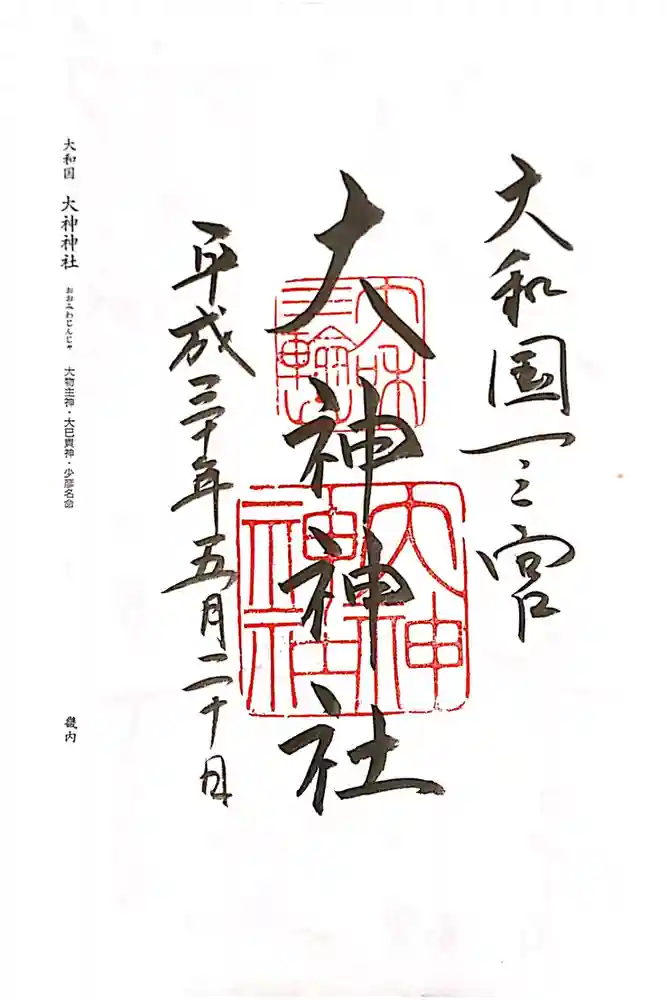 大和国一之宮
大神神社
平成三十年五月二十日
大和国 大神神社 おおみわじんじゃ 大物主神・大己貴神・少彦名命 畿内